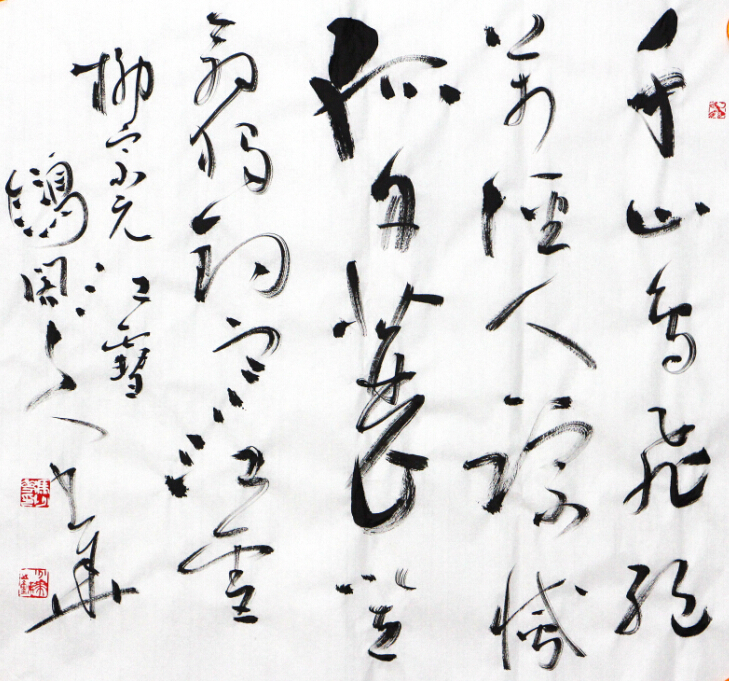 千山鳥飛絕
萬徑人踪滅
孤舟蓑笠
翁獨釣寒江雪
柳宗元江雪